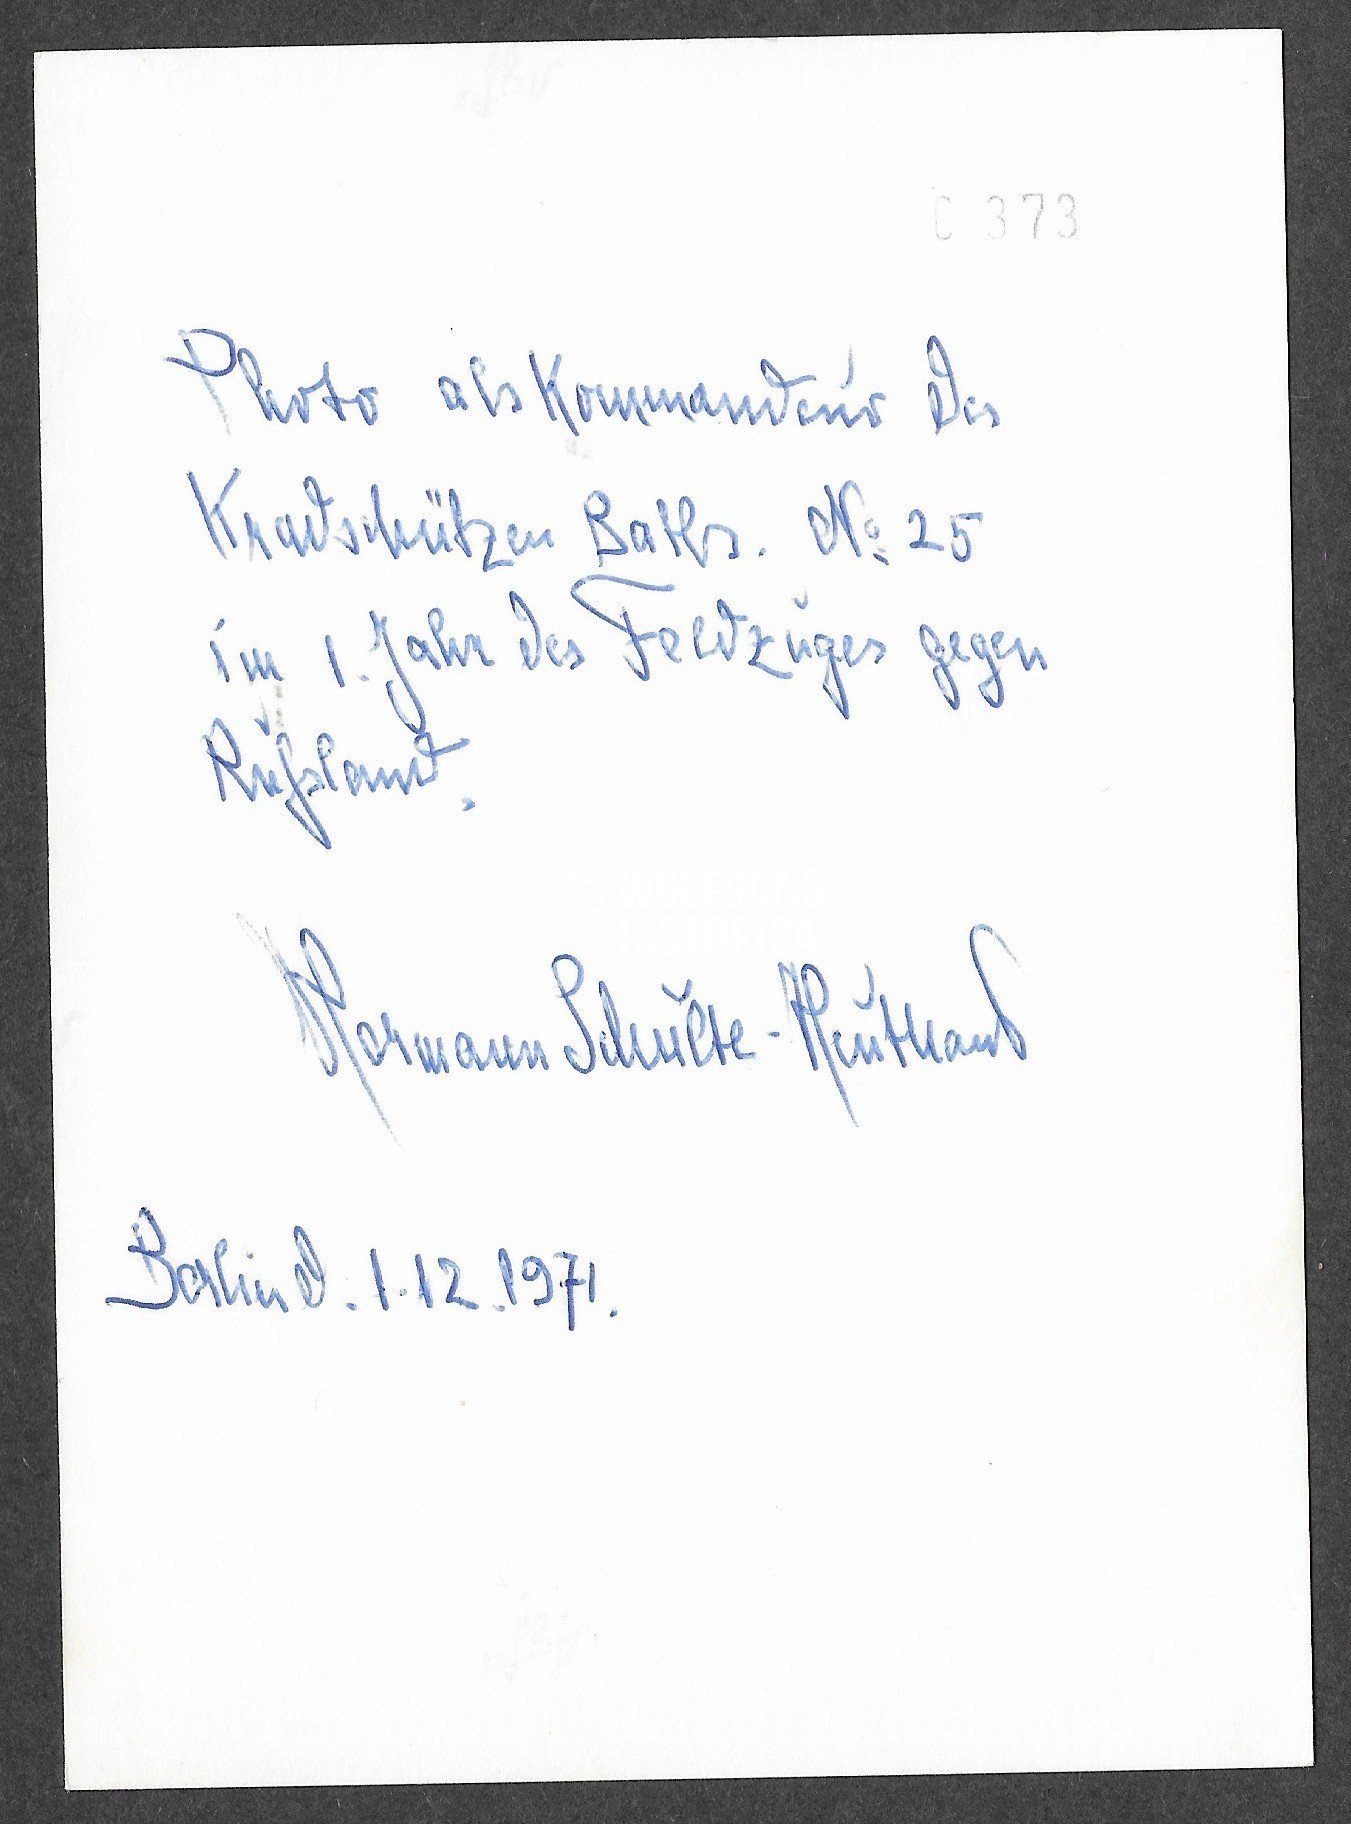 C 373
Photo als Kommandeur des
Kradschützen Batls. No 25
im 1. Jahr des Feldzuges gegen
Rußland.
WOLFGANG
HISTORICA
Hermann Schulte-Heuthaus
Berlin d. 1.12.1971.